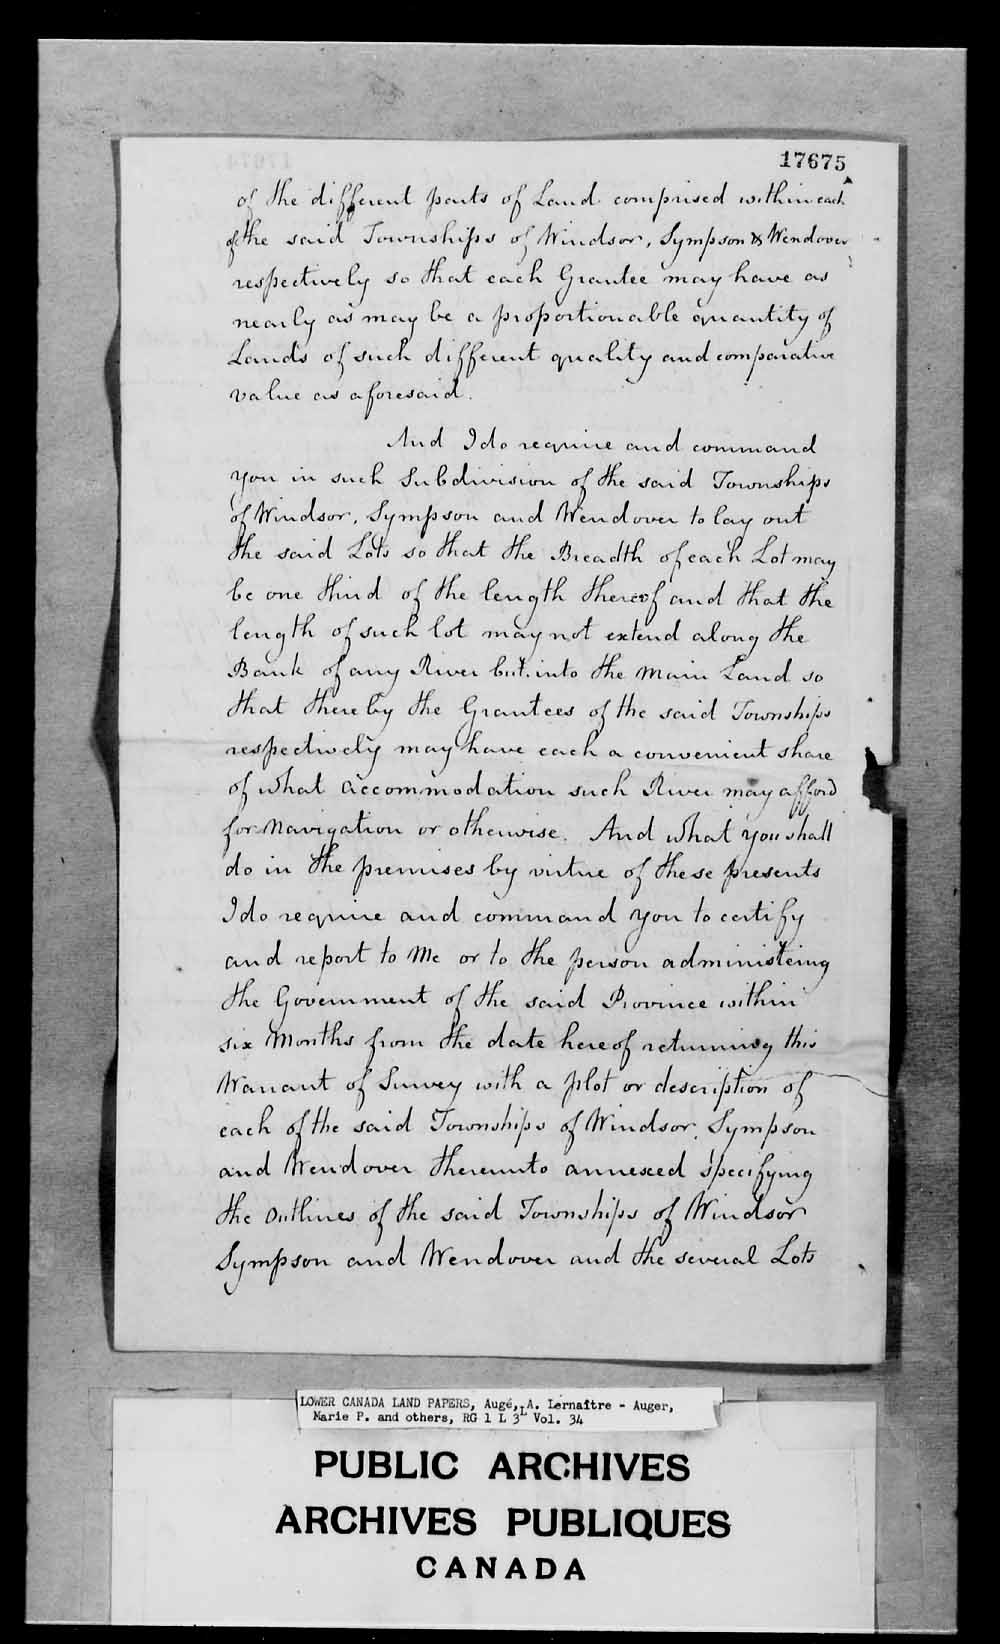 17675
of the different parts of Land comprised within each
of the said Townships of Windsor, Sympson & Wendover
respectively so that each Grantee may have as
nearly as may be a proportionable quantity of
Lands of such different quality and comparative
value as aforesaid.
And I do require and command
you in such Subdivision of the said Townships
of Windsor, Sympson and Wendover to lay out
the said Lots so that the Breadth of each Lot may
be one third of the length thereof and that the
length of such lot may not extend along the
Bank of any River but into the Main Land so
that thereby the Grantees of the said Townships
respectively may have each a convenient share
of what accommodation such River may afford
for Navigation or otherwise. And what you shall
do in the premises by virtue of these presents
I do require and command you to certify
and report to Me or to the person administeing
the Government of the said Province within
six Months from the date hereof returning this
Warrant of Survey with a plot or description of
each of the said Townships of Windsor, Sympson
and Wendover thereunto annexed specifying
the Outlines of the said Townships of Windsor
Sympson and Wendover and the several Lots
LOWER CANADA LAND PAPERS, Augé, A. Lernaître - Auger,
Marie P. and others, RG 1 L 3L Vol. 34
PUBLIC ARCHIVES
ARCHIVES PUBLIQUES
CANADA